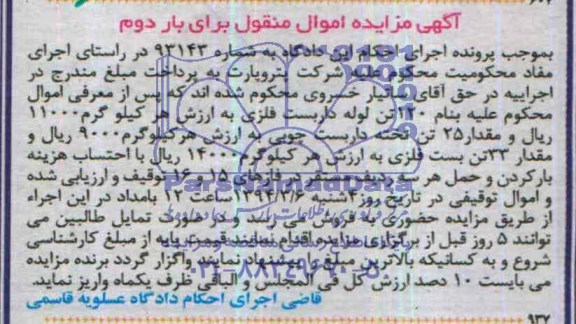 ۶۰۲
آگهی مزایده اموال منقول برای بار دوم
بموجب پرونده اجرای احکام این دادگاه به شماره ۹۳۱۴۳ در راستای اجرای
مفاد محکومیت محکوم علیه شرکت پتروپارت به پرداخت مبلغ مندرج در
اجراییه در حق آقای مانیار خسروی محکوم شده اند که پس از معرفی اموال
محکوم علیه بنام ۱۲۰تن لوله داربست فلزی به ارزش هر کیلو گرم۱۱۰۰۰
ریال و مقدار۲۵ تن تخته داربست چوبی به ارزش هر کیلوگرم۹۰۰۰ ریال و
مقدار ۳۳تن بست فلزی به ارزش هر کیلوگرم ۱۴۰۰۰ ریال با احتساب هزینه
بارکردن و حمل هر سه ردیف مستقر در فازهای ۱۵ و ۱۶ توقیف و ارزیابی شده
و اموال توقیفی در تاریخ روز ۱۳۹۴/۲/۶ ساعت ۱۲ بامداد در این اجراء
از طریق مزایده حضوری به فروش می رسد و در صورت تمایل طالبین می
توانند ۵ روز قبل از برگزاری مزایده اقدام نمایند قیمت پایه از مبلغ کارشناسی
شروع و به کسانیکه بالاترین مبلغ را پیشنهاد نمایند واگزار گردد برنده مزایده
می بایست ۱۰ دصد ارزش کل فی المجلس و الباقی ظرف یکماه واریز نماید.
قاضی اجرای احکام دادگاه عسلویه قاسمی
۹۳۲
ParsNamadData
۰۲۱-۸۸۳۴۹۶۷۰